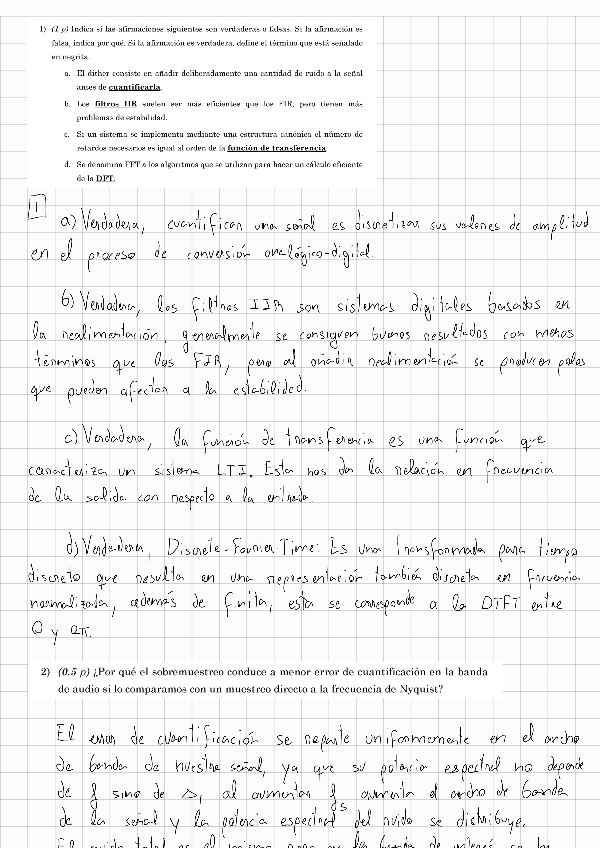 1) (1 p) Indica si las afirmaciones siguientes son verdaderas o falsas. Si la afirmación es
falsa, indica por qué. Si la afirmación es verdadera, define el término que está señalado
en negrita.
a. El dither consiste en añadir deliberadamente una cantidad de ruido a la señal
antes de cuantificarla.
b. Los filtros IIR suelen ser más eficientes que los FIR, pero tienen más
problemas de estabilidad.
c. Si un sistema se implementa mediante una estructura canónica el número de
retardos necesarios es igual al orden de la función de transferencia.
d. Se denomina FFT a los algoritmos que se utilizan para hacer un cálculo eficiente
de la DFT.
1
a) Verdadera, cuantificar una señal es discretizar sus valores de amplitud
en el proceso de conversión analógico-digital.
b) Verdadera, los filtros IIR son sistemas digitales basados en
la realimentación, generalmente se consiguen buenos resultados con menos
términos que los FIR, pero al añadir realimentación se producen polos
que pueden afectar a la estabilidad.
c) Verdadera, la función de transferencia es una función que
caracteriza un sistema LTI. Esta nos da la relación en frecuencia
de la salida con respecto a la entrada.
d) Verdadera, Discrete-Fourier-Time: Es una transformada para tiempo
discreto que resulta en una representación también discreta en frecuencia
normalizada, además de finita, esta se corresponde a la DTFT entre
0 y 2π.
2) (0.5 p) ¿Por qué el sobremuestreo conduce a menor error de cuantificación en la banda
de audio si lo comparamos con un muestreo directo a la frecuencia de Nyquist?
El error de cuantificación se reparte uniformemente en el ancho
de banda de nuestra señal, ya que su potencia espectral no depende
de f sino de Δ, al aumentar fs aumenta el ancho de banda
de la señal y la potencia espectral del ruido se distribuye.
El ruido total es el